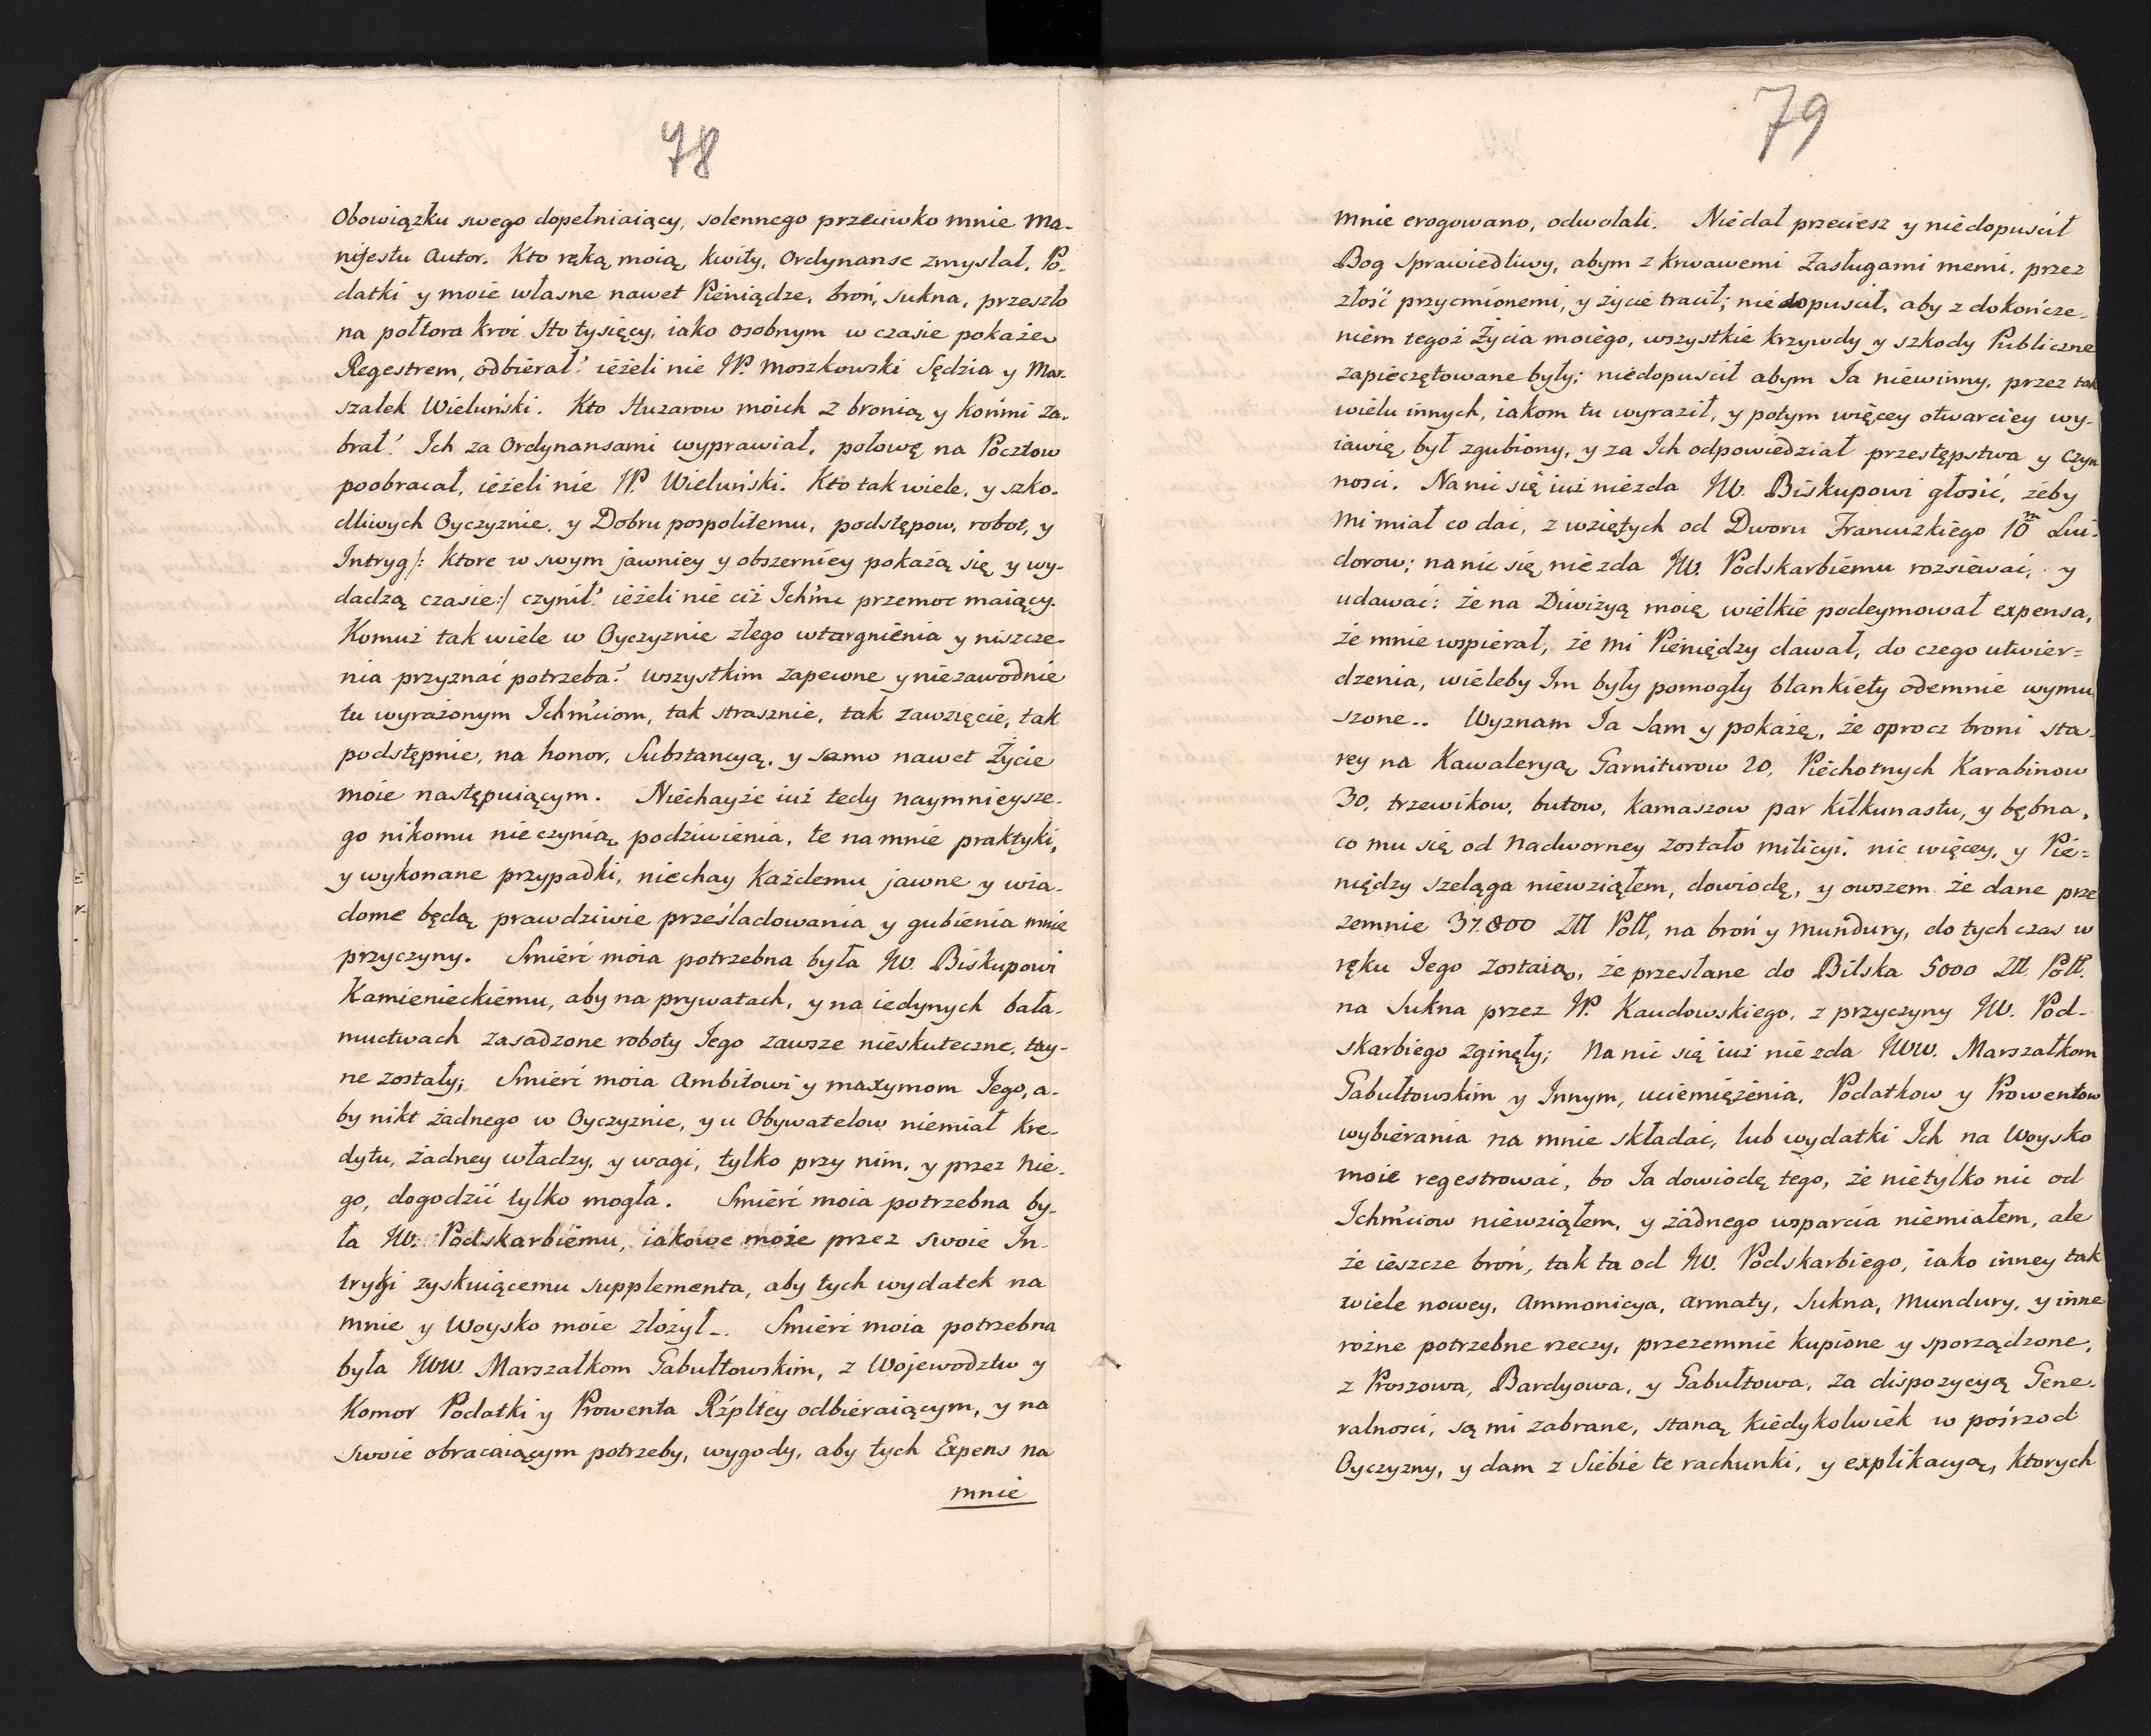 78
Obowiązku swego dopełniaiący, solennego przeciwko mnie Ma-
nifestu Autor. Kto ręką moią kwity, Ordynanse zmyslał, Po-
datki y moie własne nawet Pieniądze, broń, sukna, przeszło
na połtora kroć Sto tysięcy, iako osobnym w czasie pokażę
Regestrem, odbierał? ieżeli nie W. Moszkowski Sędzia y Mar-
szałek Wieluński. Kto Huzarow moich z bronią y końmi za-
brał? Ich za Ordynansami wyprawiał, połowę na Pocztow
poobracał, ieżeli nie W. Wieluński. Kto tak wiele, y szko-
dliwych Oyczyznie, y Dobru pospolitemu, podstępow, robot, y
Intryg /: ktore w swym jawniey y obszerniey pokażą się y wy-
dadzą czasie :/ czynił? ieżeli nie ciż Ichm̃c przemoc maiący.
Komuż tak wiele w Oyczyznie złego wtargnienia y niszcze-
nia przyznać potrzeba? wszystkim zapewne y niezawodnie
tu wyrażonym Ichm̃ciom, tak strasznie, tak zawzięcie, tak
podstępnie, na honor, Substancyą, y samo nawet Życie
moie następuiącym. Niechayże iuż tedy naymnieysze-
go nikomu nie czynią podziwienia, te na mnie praktyki,
y wykonane przypadki, niechay każdemu jawne y wia-
dome będą prawdziwie prześladowania y gubienia mnie
przyczyny. Smierć moia potrzebna była JW. Biskupowi
Kamienieckiemu, aby na prywatach, y na iedynych bała-
muctwach zasadzone roboty Jego zawsze nieskuteczne, tay-
ne zostały; Smierć moia Ambitowi y maxymom Jego, a-
by nikt żadnego w Oyczyznie, y u Obywatelow niemiał kre-
dytu, żadney władzy, y wagi, tylko przy nim, y przez nie-
go, dogodzić tylko mogła. Smierć moia potrzebna by-
ła JW. Podskarbiemu, iakowe może przez swoie In-
trygi zyskuiącemu supplementa, aby tych wydatek na
mnie y Woysko moie złożył... Smierć moia potrzebna
była JWW. Marszałkom Gabułtowskim, z Wojewodztw y
Komor Podatki y Prowenta Rzpltey odbieraiącym, y na
swoie obracaiącym potrzeby, wygody, aby tych Expens na
mnie
79
mnie erogowano, odwołali. Niedał przeciesz y niedopuscił
Bog Sprawiedliwy, abym z krwawemi Zasługami memi, przez
złość przycmionemi, y życie tracił; niedopuscił, aby z dokończe-
niem tegoż Życia moiego, wszystkie krzywdy y szkody Publiczne
zapieczętowane były; niedopuscił abym Ja niewinny, przez tak
wielu innych, iakom tu wyraził, y potym więcey otwarciey wy-
iawię, był zgubiony, y za Ich odpowiedział przestępstwa y czyn
nosci. Na nic się iuż niezda JW. Biskupowi głosić, żeby
mi miał co dać, z wziętych od Dworu Francuzkiego 10m Lui-
dorow; na nic się nie zda JW. Podskarbiemu rozsiewać, y
udawać: że na Diwizyą moię wielkie podeymował expensa,
że mnie wspierał, że mi Pieniędzy dawał, do czego utwier=
dzenia, wieleby Im były pomogły blankiety odemnie wymu
szone.. Wyznam Ja Sam y pokażę, że oprocz broni sta-
rey na Kawaleryą Garniturow 20, Piechotnych Karabinow
30, trzewikow, butow, kamaszow par kilkunastu, y bębna,
co mu się od Nadworney zostało milicyi, nic więcey, y Pie=
niędzy szeląga niewziąłem, dowiodę, y owszem że dane prze
zemnie 37.800 Złł Poll, na broń y mundury, do tych czas w
ręku Jego zostaią, że przesłane do Bilska 5000 Złł. Poll.
na Sukna przez W. Kaudowskiego, z przyczyny JW. Pod-
skarbiego zginęły; Na nic się iuż nie zda JWW. Marszałkom
Gabułtowskim y Innym, uciemiężenia, Podatkow y Prowentow
wybierania na mnie składać, lub wydatki Ich na Woysko
moie regestrować, bo Ja dowiodę tego, że nietylko nic od
Ichm̃ciow niewziąłem, y żadnego wsparcia niemiałem, ale
że ieszcze broń, tak ta od JW. Podskarbiego, iako inney tak
wiele nowey, Ammonicya, Armaty, Sukna, Mundury, y inne
rożne potrzebne rzeczy, przezemnie kupione y sporządzone,
z Proszowa, Bardyowa, y Gabułtowa, za dispozycyą Gene-
ralnosci, są mi zabrane, staną kiedykolwiek w pośrzod
Oyczyzny, y dam z Siebie te rachunki, y explikacyą, ktorych